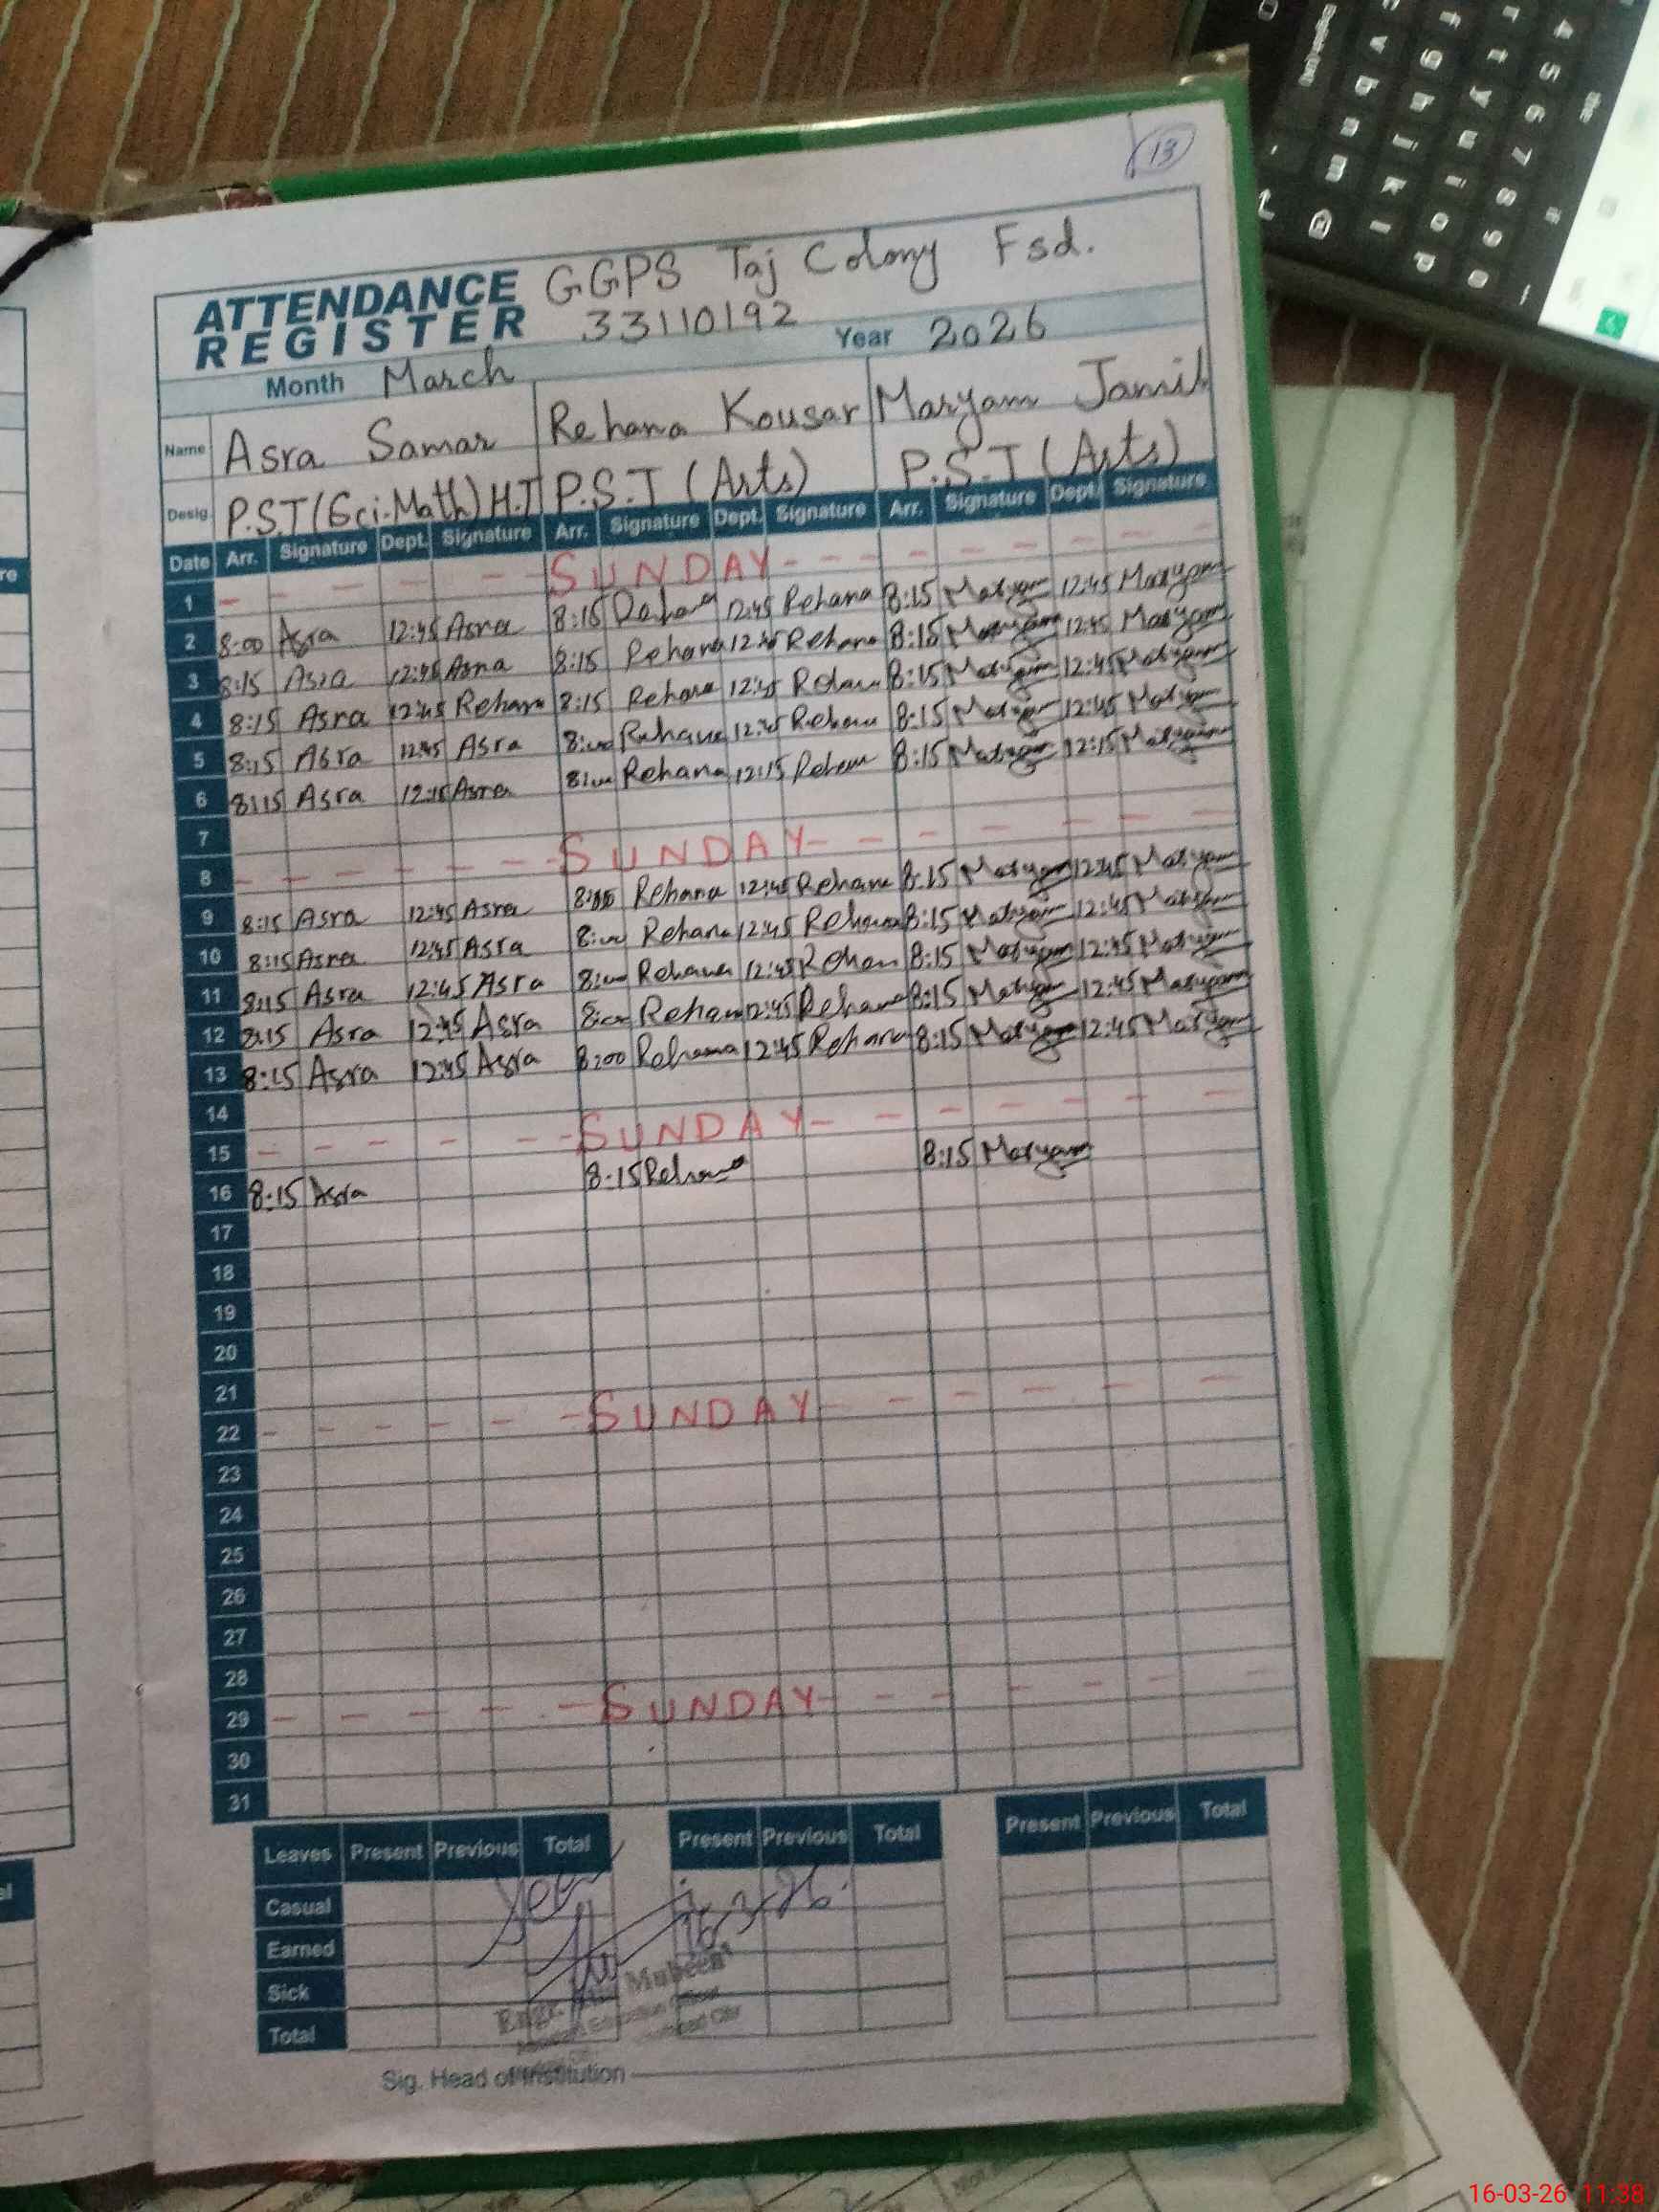 13
ATTENDANCE REGISTER GGPS Taj Colony Fsd.
33110192
Month March Year 2026
Name Asra Samar Rehana Kousar Maryam Jamil
Desig. P.S.T(Sci-Math) H.T P.S.T (Arts) P.S.T (Arts)
Date Arr. Signature Dept. Signature Arr. Signature Dept. Signature Arr. Signature Dept. Signature
1 SUNDAY
2 8:00 Asra 12:45 Asra 8:15 Rehana 12:45 Rehana 8:15 Maryam 12:45 Maryam
3 8:15 Asra 12:45 Asra 8:15 Rehana 12:45 Rehana 8:15 Maryam 12:45 Maryam
4 8:15 Asra 12:45 Rehana 8:15 Rehana 12:45 Rehana 8:15 Maryam 12:45 Maryam
5 8:15 Asra 12:45 Asra 8:00 Rehana 12:45 Rehana 8:15 Maryam 12:45 Maryam
6 8:15 Asra 12:15 Asra 8:00 Rehana 12:15 Rehana 8:15 Maryam 12:15 Maryam
7
8 SUNDAY
9 8:15 Asra 12:45 Asra Rehana 12:45 Rehana 8:15 Maryam 12:45 Maryam
10 8:15 Asra 12:45 Asra 8:00 Rehana 12:45 Rehana 8:15 Maryam 12:45 Maryam
11 8:15 Asra 12:45 Asra 8:00 Rehana 12:45 Rehana 8:15 Maryam 12:45 Maryam
12 8:15 Asra 12:45 Asra 8:00 Rehana 12:45 Rehana 8:15 Maryam 12:45 Maryam
13 8:15 Asra 12:45 Asra 8:00 Rehana 12:45 Rehana 8:15 Maryam 12:45 Maryam
14
15 SUNDAY
16 8:15 Asra 8:15 Rehana 8:15 Maryam
17
18
19
20
21
22 SUNDAY
23
24
25
26
27
28
29 SUNDAY
30
31
Leaves Present Previous Total Present Previous Total Present Previous Total
Casual
16-3-26.
Earned
Sick
Total
Engr. Mubeen
Sig. Head of Institution
16-03-26 11:38